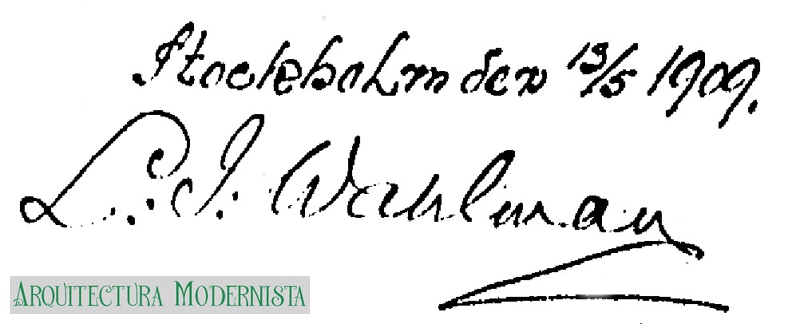 Stockholm den 13/5 1909.
L. I. Wahlman
ARQUITECTURA MODERNISTA